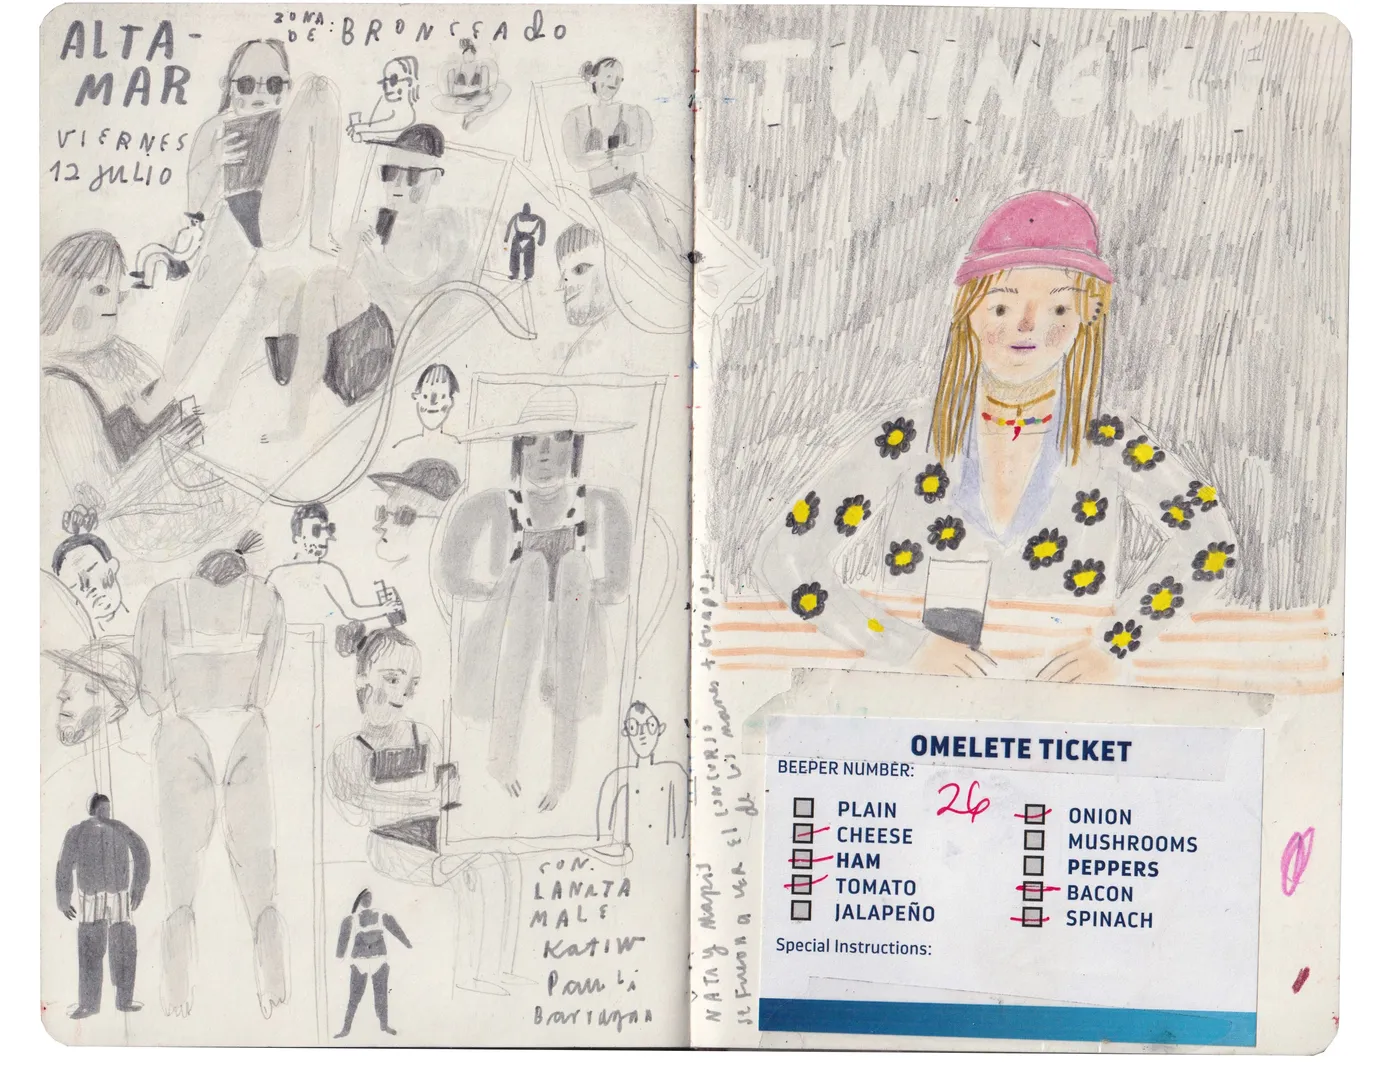 ALTA-
MAR
VIERNES
12 JULIO
ZONA
DE:
BRONCEADO
CON.
LANITA
MALE
Katiw
Pauli
Barragan
ÑATA y Mapis
se fueron a ver el concurso
de los manes + guapos
TWINGU
OMELETE TICKET
BEEPER NUMBER:
26
PLAIN
CHEESE
HAM
TOMATO
JALAPEÑO
ONION
MUSHROOMS
PEPPERS
BACON
SPINACH
Special Instructions: